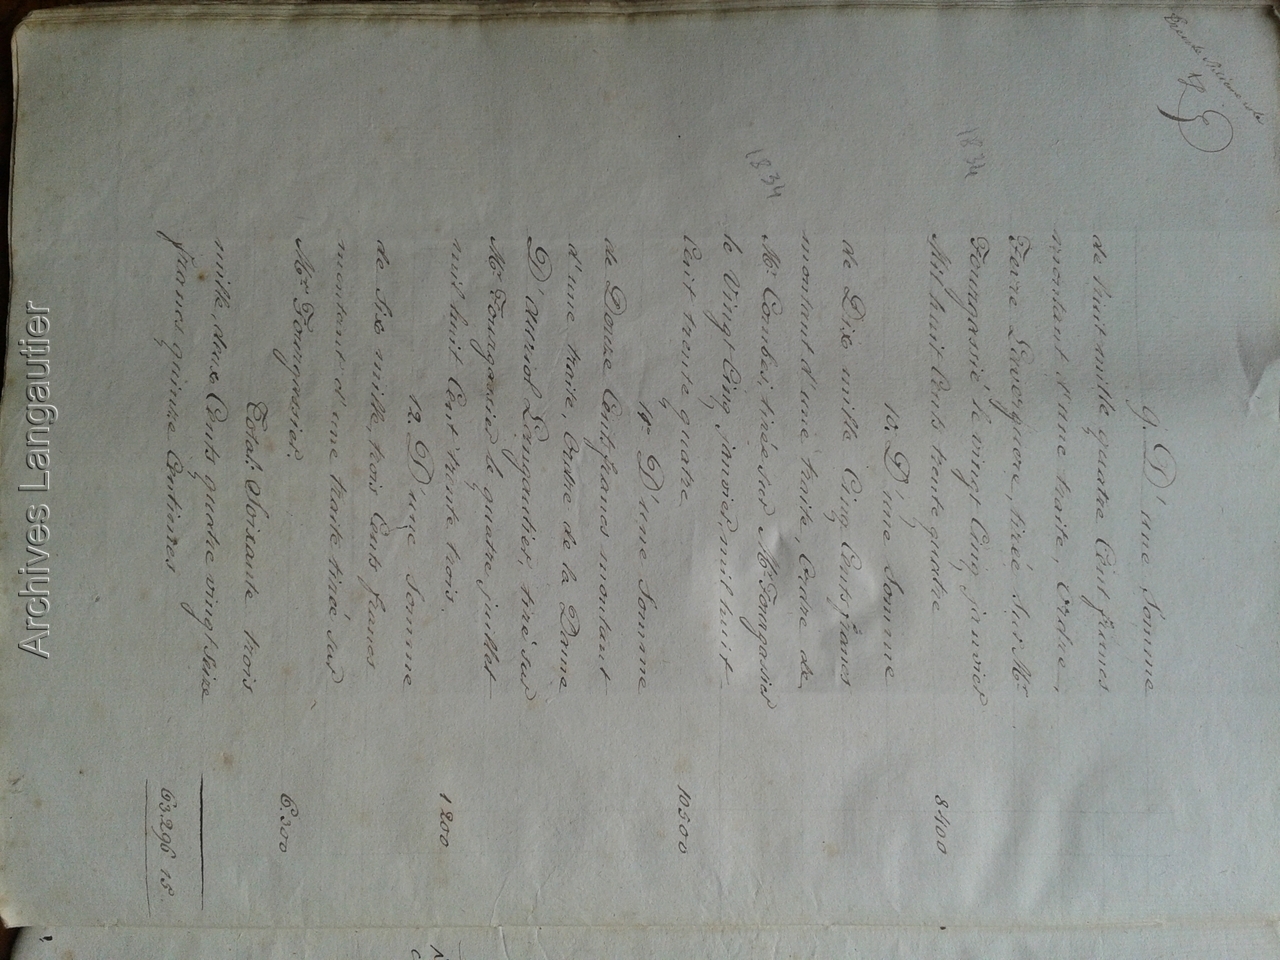 9. D'une Somme
de huit mille quatre Cent francs
montant d'une traite, Ordre
Favre Lavergnere, tirée Sur Mr
Fouragassié le vingt Cinq janvier
Mil huit Cents trente quatre
8400
1834
10. D'une Somme
de Dix mille Cinq Cents francs
montant d'une traite, Ordre de
Mr Combes, tirée sur Mr Fouragassié
le Vingt Cinq janvier mil huit
Cent trente quatre
10500
1834
11. D'une Somme
de Douze Cents francs montant
d'une traite, Ordre de la Dame
D'auriol Langautier, tiré sur
Mr Fouragassié le quatre juillet
mil huit Cent trente trois.
1200
12. D'une Somme
de Six mille trois Cents francs
montant d'une traite tirée sur
Mr Fouragassié.
6.300
Total: Soixante trois
mille deux Cents quatre vingt seize
francs quinze Centimes
63.296 15
Archives Langautier